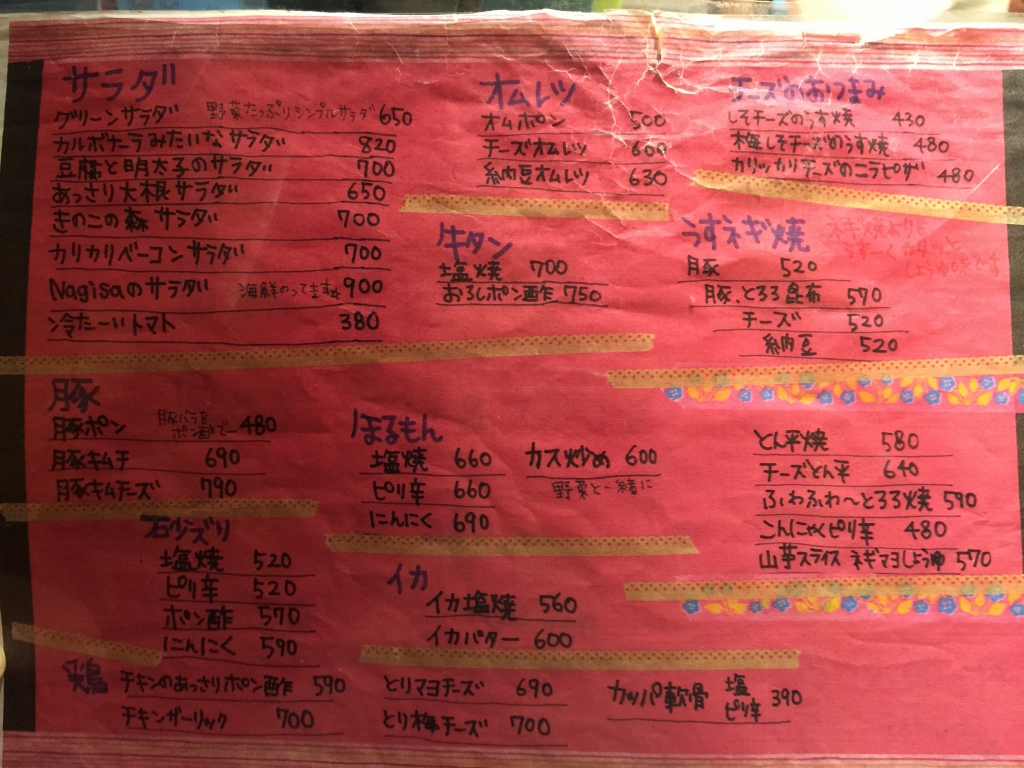 サラダ
グリーンサラダ 野菜たっぷりシンプルサラダ 650
カルボナーラみたいなサラダ 820
豆腐と明太子のサラダ 700
あっさり大根サラダ 650
きのこの森サラダ 700
カリカリベーコンサラダ 700
Nagisaのサラダ 海鮮のってます☆ 900
冷たーいトマト 380
オムレツ
オムポン 500
チーズオムレツ 600
納豆オムレツ 630
チーズのおつまみ
しそチーズのうす焼 430
梅しそチーズのうす焼 480
カリッカリチーズのニラピザ 480
牛タン
塩焼 700
おろしポン酢 750
うすネギ焼
ネギ焼よりも
うすーく
しょうゆ味です
豚 520
豚、とろろ昆布 570
チーズ 520
納豆 520
豚
豚ポン 豚バラを
ポン酢でー 480
豚キムチ 690
豚キムチーズ 790
ほるもん
塩焼 660
ピリ辛 660
にんにく 690
カス炒め 600
野菜と一緒に
とん平焼 580
チーズとん平 640
ふわふわ〜とろろ焼 590
こんにゃくピリ辛 480
山芋スライス ネギマヨしょうゆ 570
砂ズリ
塩焼 520
ピリ辛 520
ポン酢 570
にんにく 590
イカ
イカ塩焼 560
イカバター 600
鶏
チキンのあっさりポン酢 590
チキンガーリック 700
とりマヨチーズ 690
とり梅チーズ 700
カッパ軟骨 塩
ピリ辛 390